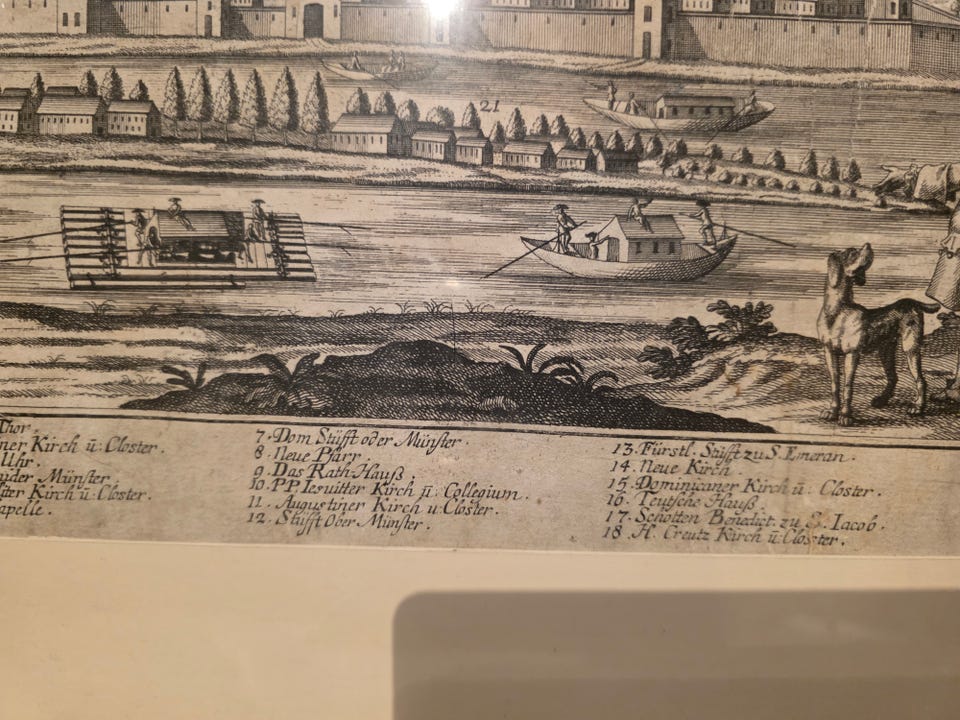 21
Thor
ner Kirch ū: Closter.
Uhr.
uder Münster
ster Kirch u: Closter.
apelle.
7. Dom Stüfft oder Münster.
8. Neue Pfarr
9. Das Rath Hauß
10. P.P. Iesuitter Kirch ū: Collegium.
11. Augustiner Kirch u: Closter.
12. Stüfft Ober Münster.
13. Fürstl. Stüfft zu S. Emeran.
14. Neue Kirch.
15. Dominicaner Kirch ū: Closter.
16. Teutsche Hauß
17. Schotten Benedict. zu S. Iacob.
18 H. Creutz Kirch ū: Closter.